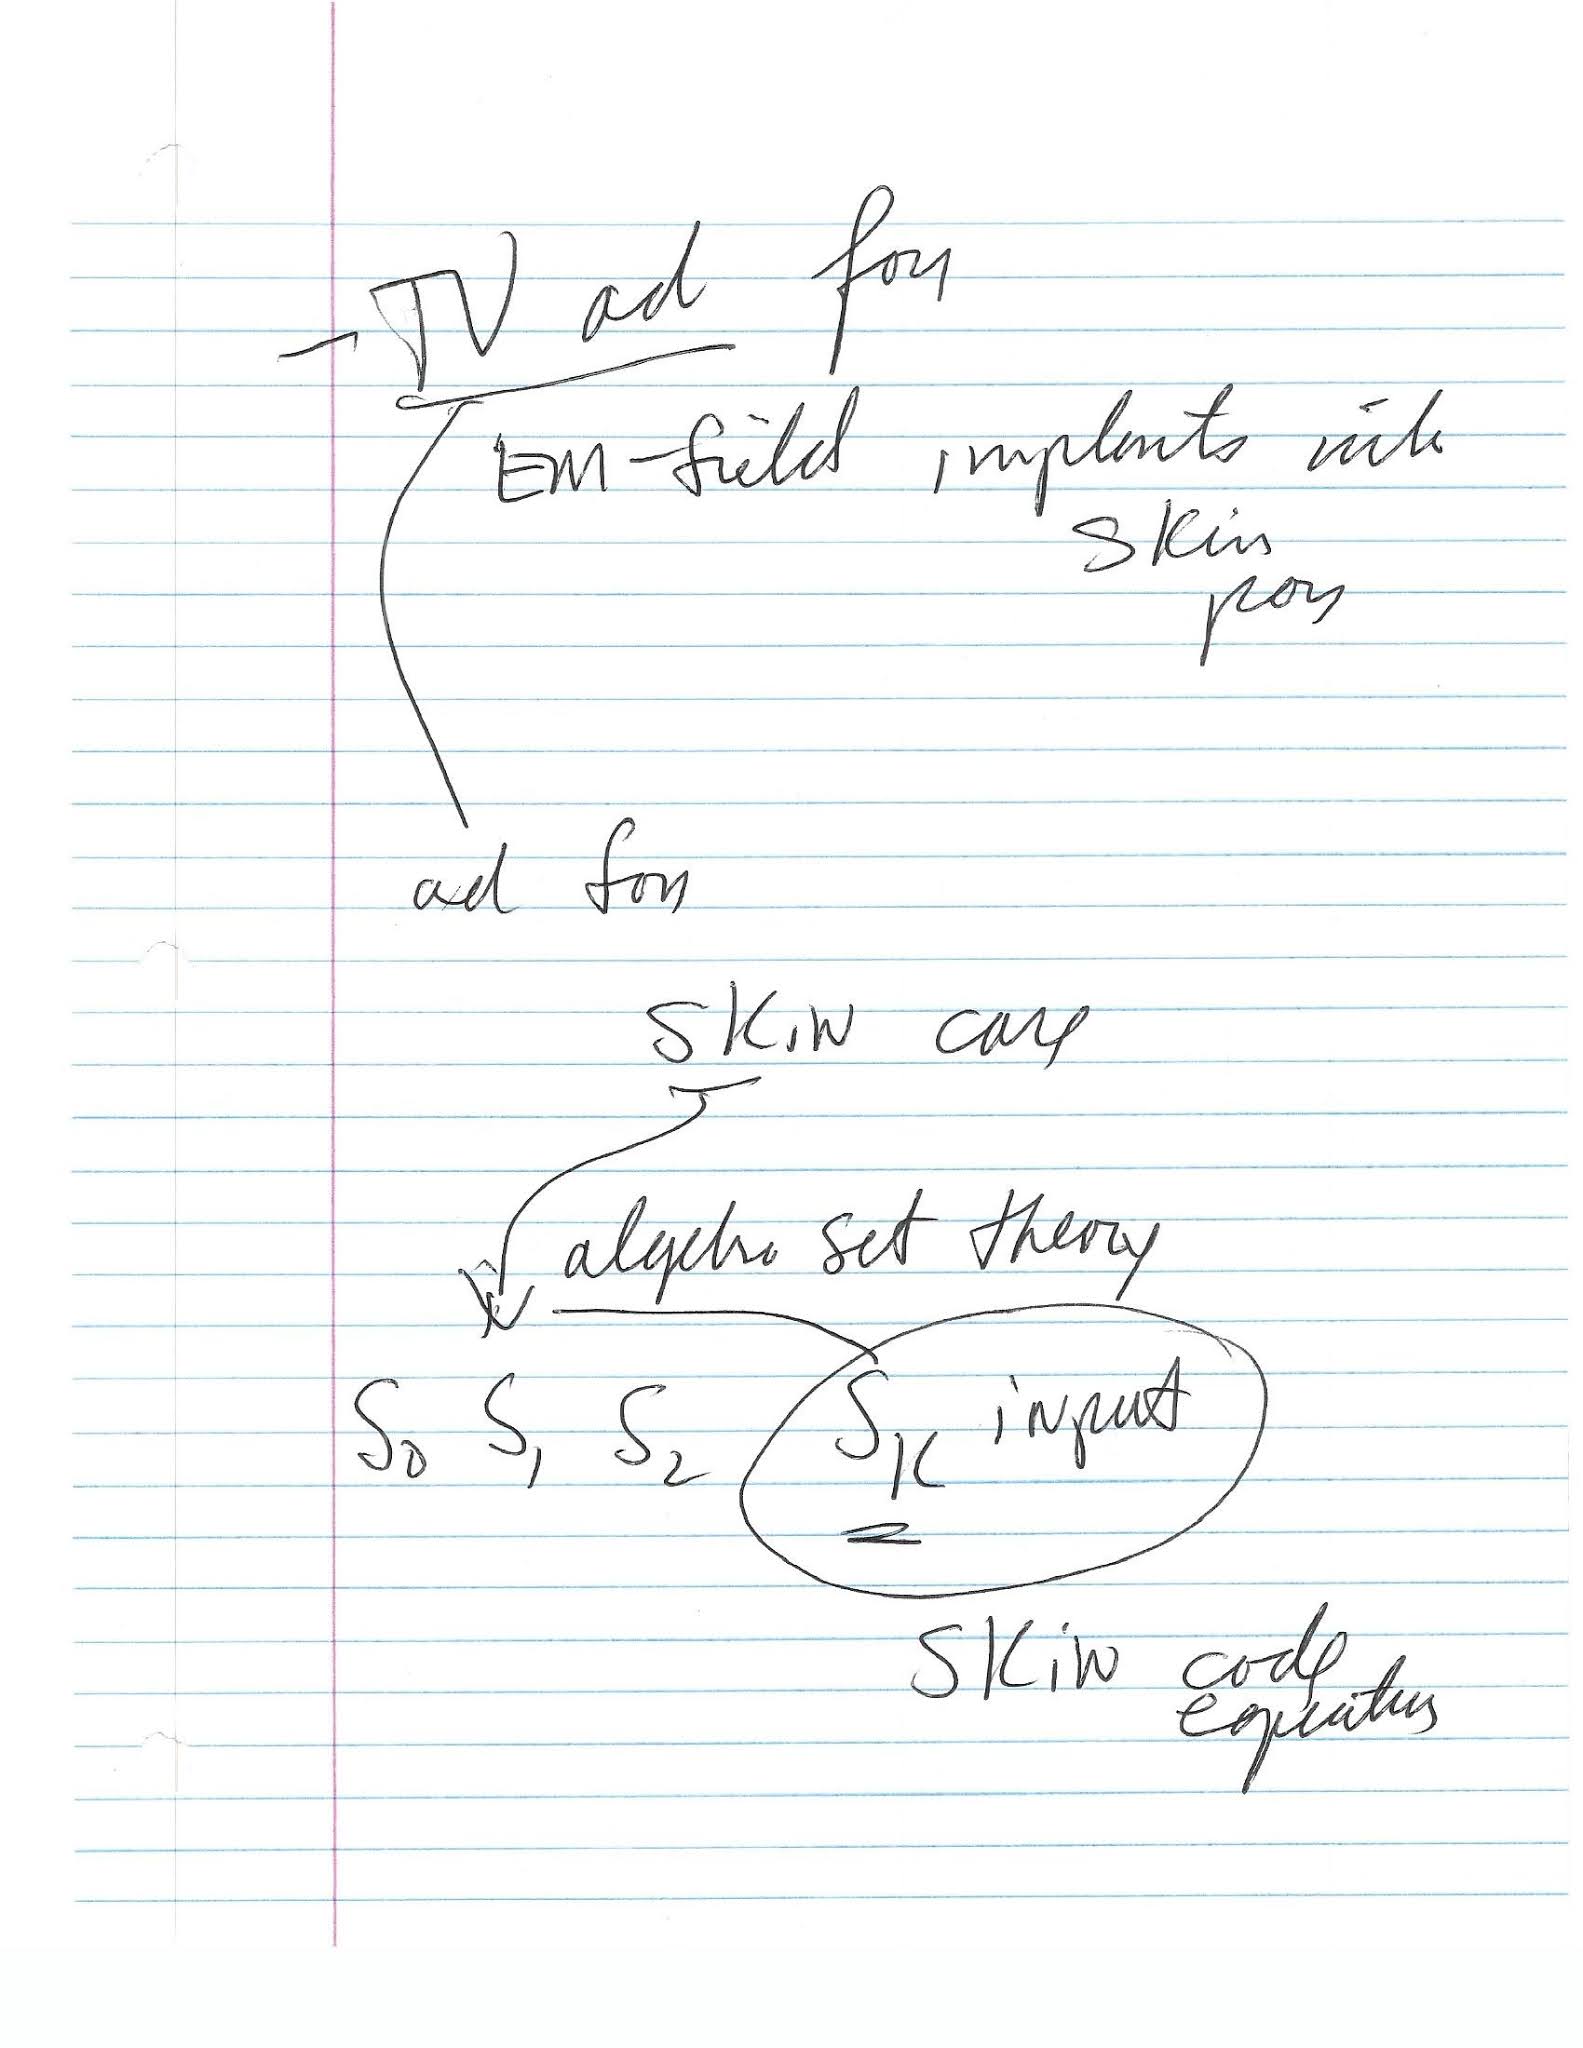 - TV ad for
EM-field implants into
skin
pors
ad for
skin care
algebra set theory
S0 S1 S2 SK input
skin code
equations